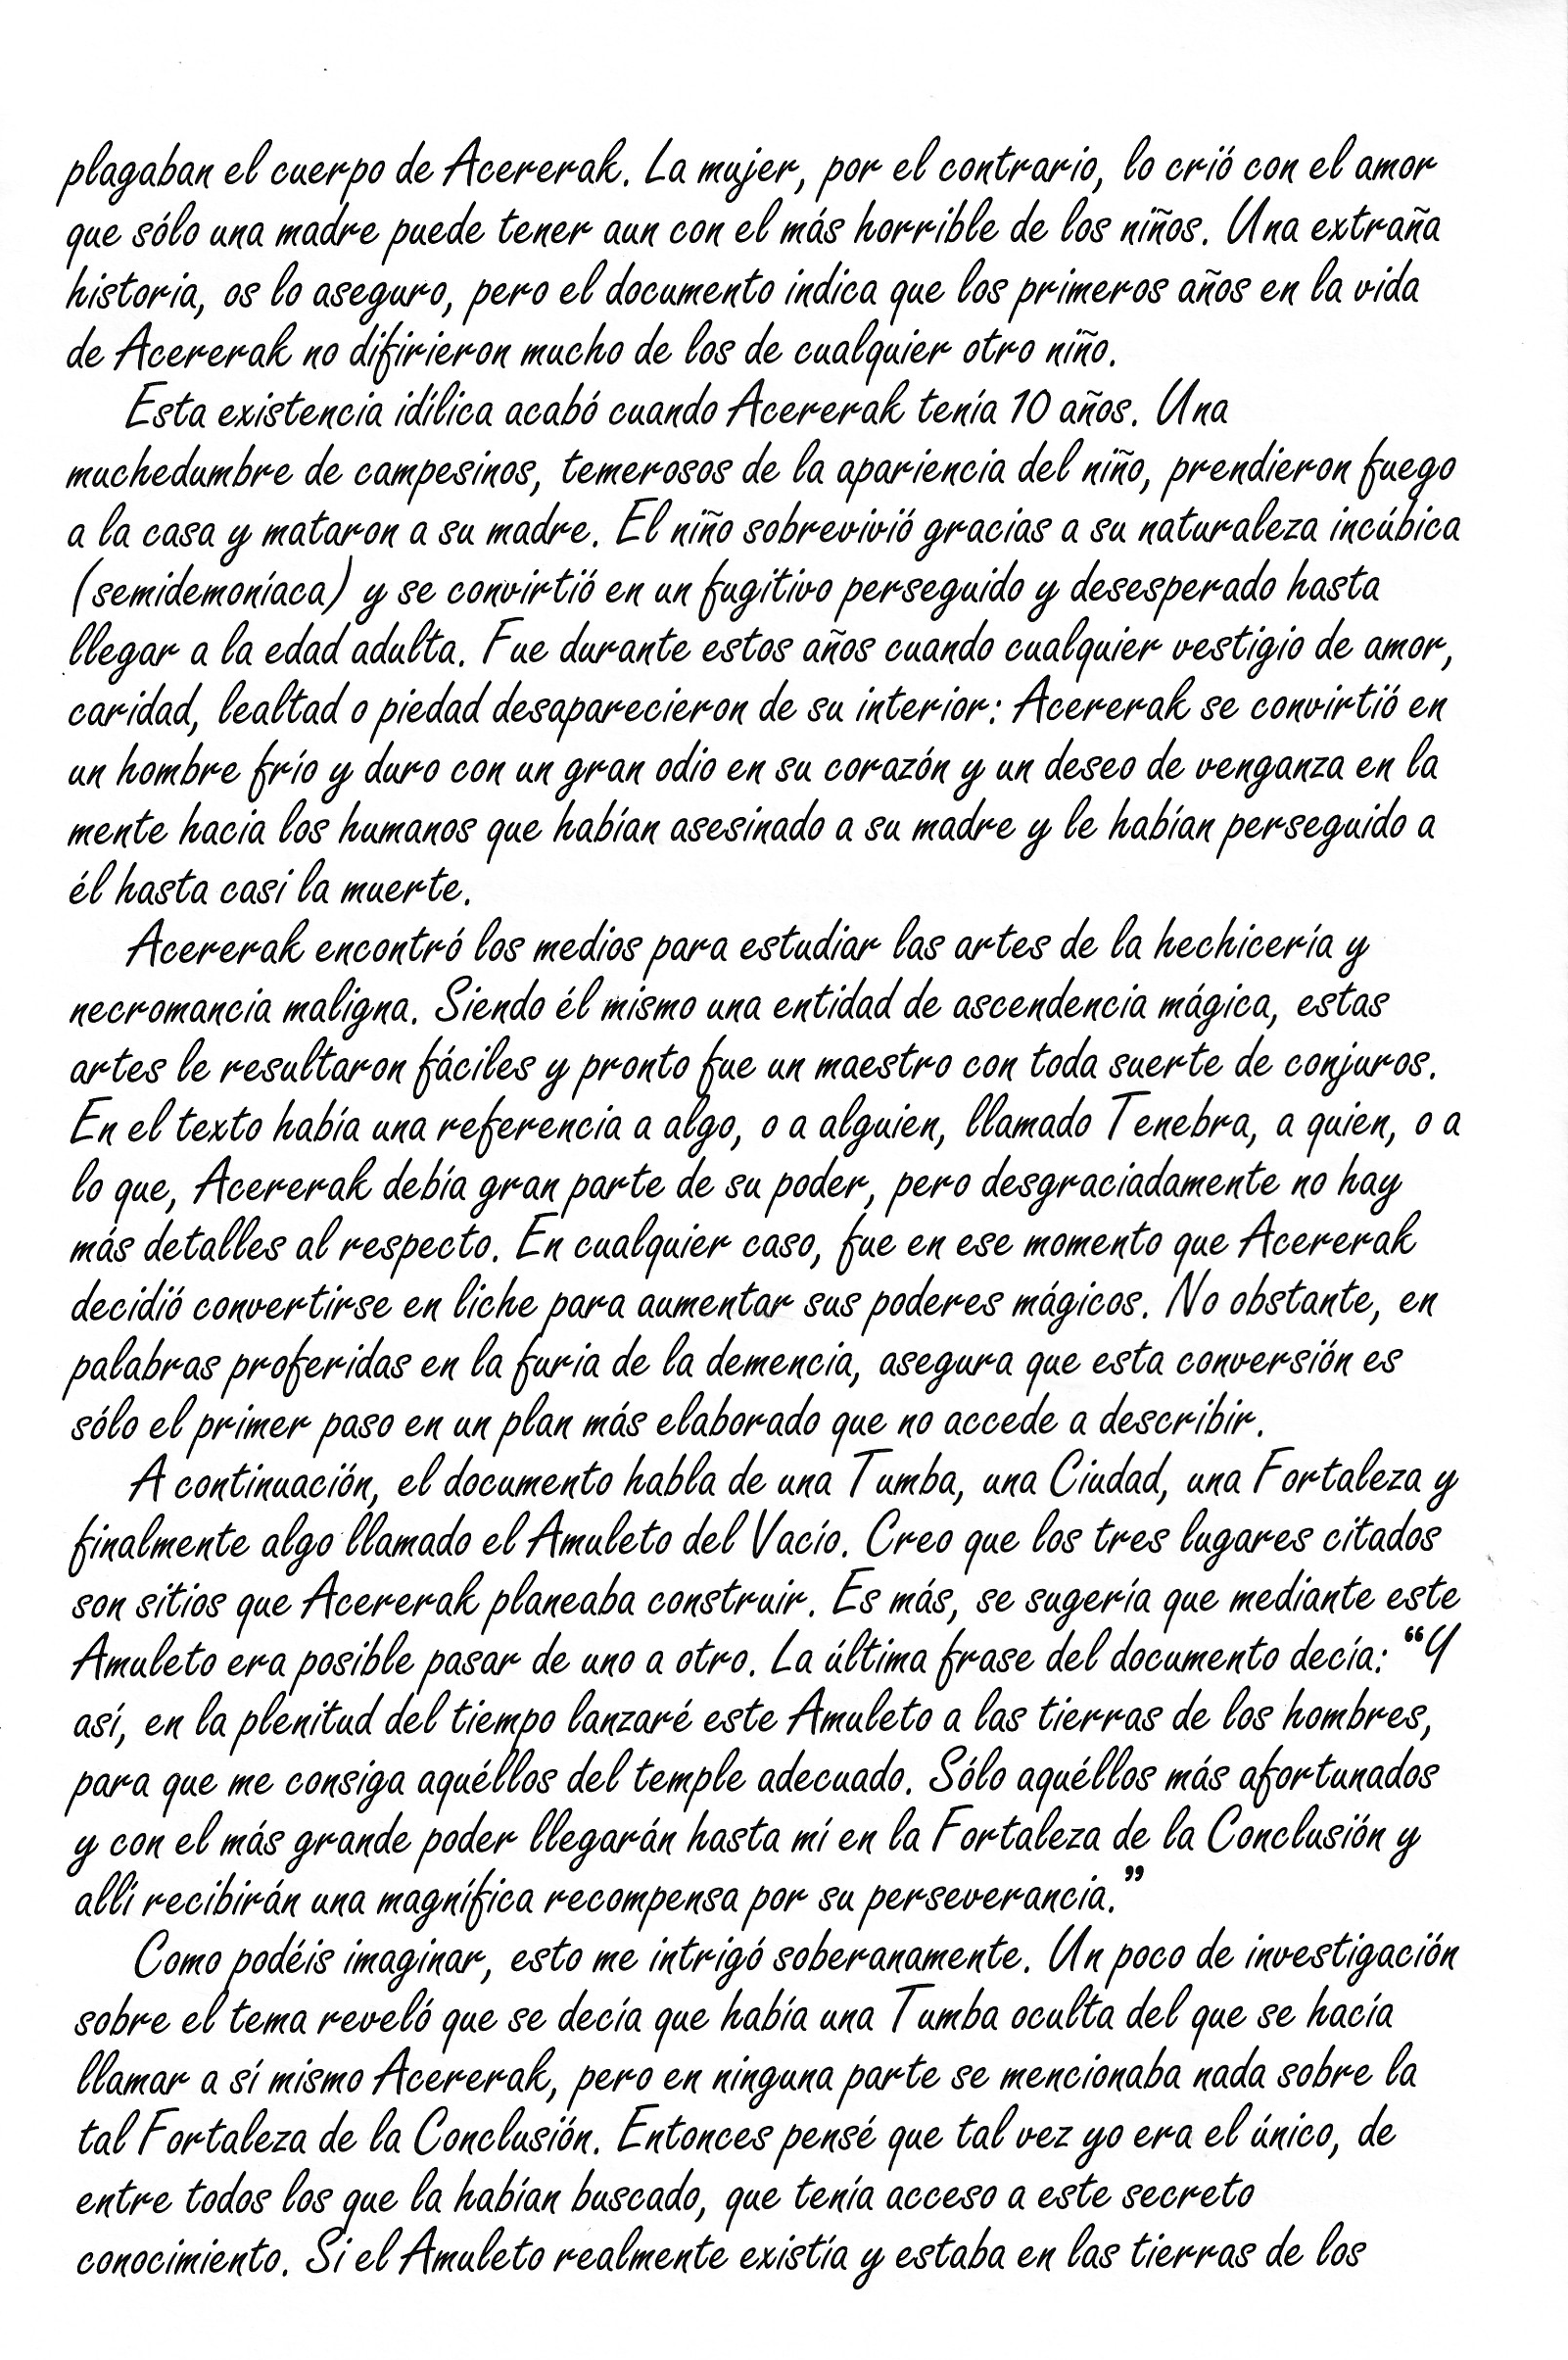 plagaban el cuerpo de Acererak. La mujer, por el contrario, lo crió con el amor
que sólo una madre puede tener aun con el más horrible de los niños. Una extraña
historia, os lo aseguro, pero el documento indica que los primeros años en la vida
de Acererak no difirieron mucho de los de cualquier otro niño.
Esta existencia idílica acabó cuando Acererak tenía 10 años. Una
muchedumbre de campesinos, temerosos de la apariencia del niño, prendieron fuego
a la casa y mataron a su madre. El niño sobrevivió gracias a su naturaleza incúbica
(semidemoníaca) y se convirtió en un fugitivo perseguido y desesperado hasta
llegar a la edad adulta. Fue durante estos años cuando cualquier vestigio de amor,
caridad, lealtad o piedad desaparecieron de su interior: Acererak se convirtió en
un hombre frío y duro con un gran odio en su corazón y un deseo de venganza en la
mente hacia los humanos que habían asesinado a su madre y le habían perseguido a
él hasta casi la muerte.
Acererak encontró los medios para estudiar las artes de la hechicería y
necromancia maligna. Siendo él mismo una entidad de ascendencia mágica, estas
artes le resultaron fáciles y pronto fue un maestro con toda suerte de conjuros.
En el texto había una referencia a algo, o a alguien, llamado Tenebra, a quien, o a
lo que, Acererak debía gran parte de su poder, pero desgraciadamente no hay
más detalles al respecto. En cualquier caso, fue en ese momento que Acererak
decidió convertirse en liche para aumentar sus poderes mágicos. No obstante, en
palabras proferidas en la furia de la demencia, asegura que esta conversión es
sólo el primer paso en un plan más elaborado que no accede a describir.
A continuación, el documento habla de una Tumba, una Ciudad, una Fortaleza y
finalmente algo llamado el Amuleto del Vacío. Creo que los tres lugares citados
son sitios que Acererak planeaba construir. Es más, se sugería que mediante este
Amuleto era posible pasar de uno a otro. La última frase del documento decía: “Y
así, en la plenitud del tiempo lanzaré este Amuleto a las tierras de los hombres,
para que me consiga aquéllos del temple adecuado. Sólo aquéllos más afortunados
y con el más grande poder llegarán hasta mí en la Fortaleza de la Conclusión y
allí recibirán una magnífica recompensa por su perseverancia.”
Como podéis imaginar, esto me intrigó soberanamente. Un poco de investigación
sobre el tema reveló que se decía que había una Tumba oculta del que se hacía
llamar a sí mismo Acererak, pero en ninguna parte se mencionaba nada sobre la
tal Fortaleza de la Conclusión. Entonces pensé que tal vez yo era el único, de
entre todos los que la habían buscado, que tenía acceso a este secreto
conocimiento. Si el Amuleto realmente existía y estaba en las tierras de los